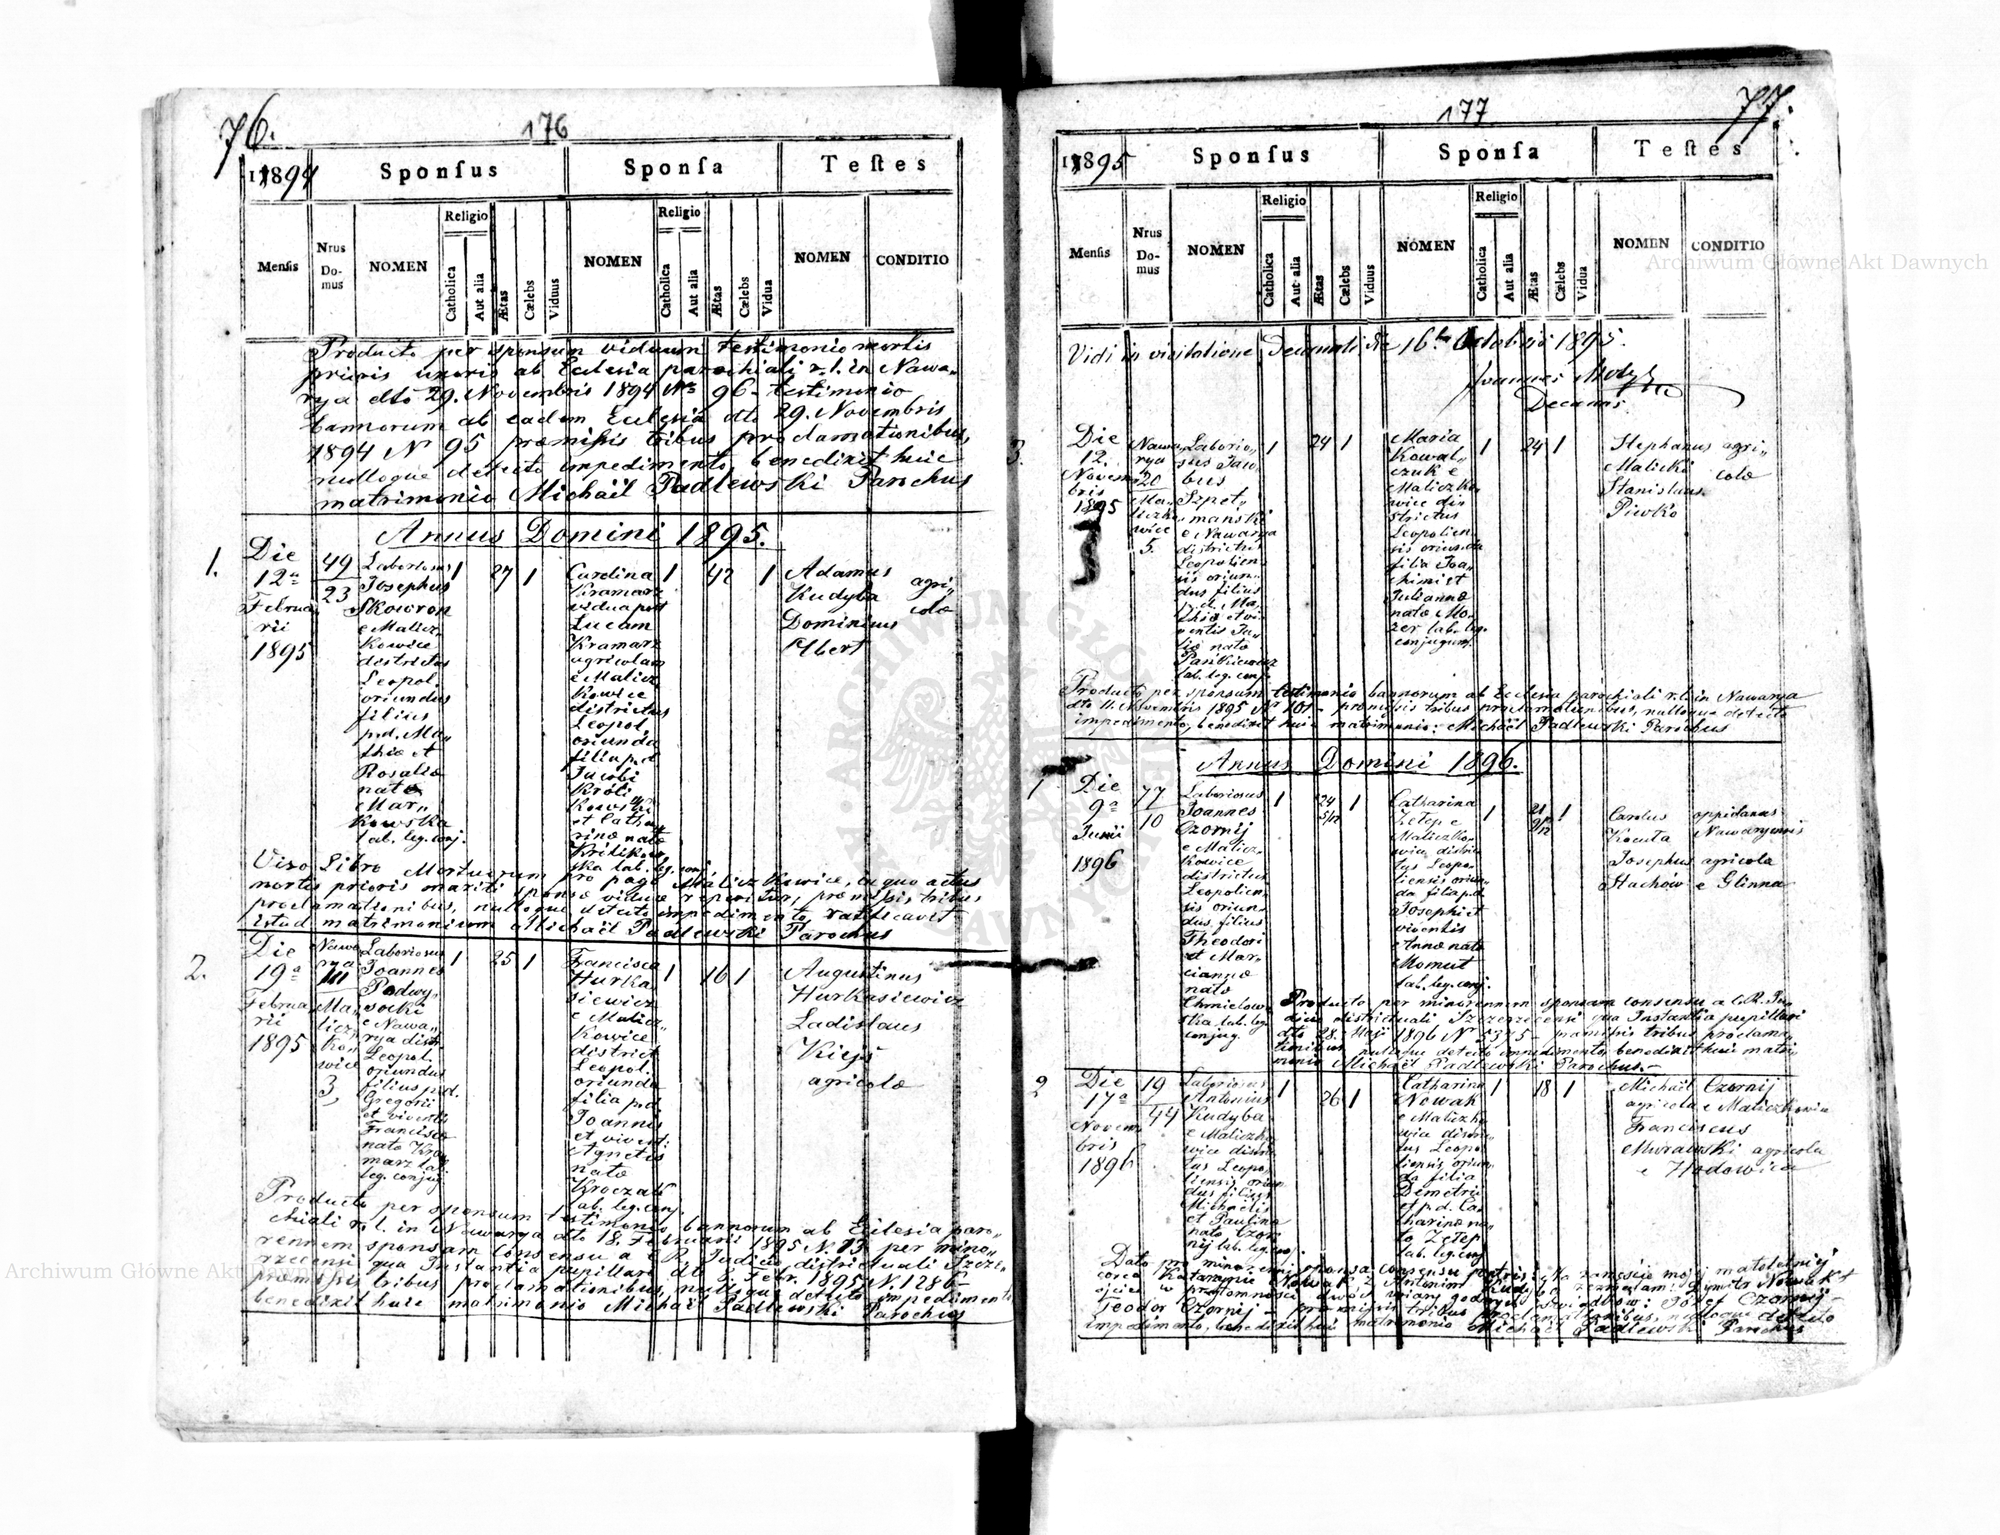 76.
176
1894
Sponsus
Sponsa
Testes
Mensis
Nrus Domus
NOMEN
Religio
Catholica
Aut alia
Ætas
Cælebs
Viduus
NOMEN
Religio
Catholica
Aut alia
Ætas
Cælebs
Vidua
NOMEN
CONDITIO
Producto per sponsum viduum testimonio mortis
prioris uxoris ab Ecclesia parochiali r. l. in Nawa„
rya dto 29. Novembris 1894 Nro 96 - testimonio
bannorum ab eadem Ecclesia dto 29. Novembris
1894 N 95 præmissis tribus proclamationibus,
nulloque detecto impedimento, benedixit huic
matrimonio Michaël Padlewski Parochus
Annus Domini 1895.
1.
Die
12a
Februa
rii
1895
49
23
Laboriosus
Josephus
Skowron
e Malicz„
kowice
districtus
Leopol.
oriundus
filius
p.d. Ma„
thiæ et
Rosaliæ
natæ
Mar„
kowska
lab. leg. conj.
1
27
1
Carolina
Kramarz
vidua post
Lucam
Kramarz
agricolam
e Malicz
kowice
districtus
Leopol.
oriunda
filia p.d
Jacobi
Króli
kowski
et Catha
rinæ natæ
Królikow
ska lab. leg. conj.
1
42
1
Adamus
Kudyba
Dominicus
Olbert
agri„
colæ
Viso Libro Mortuorum pro pago Maliczkowice, in quo actus
mortis prioris mariti sponsæ viduæ reperitur, præmissis tribus
proclamationibus, nulloque detecto impedimento, ratificavit
istud matrimonium Michaël Padlewski Parochus
2.
Die
19a
Februa
rii
1895
Nawa
rya
111
Ma„
licz„
ko„
wice
3
Laboriosus
Joannes
Podwy„
socki
e Nawa„
rya distr.
Leopol.
oriundus
filius p.d.
Gregorii
et viventis
Franciscæ
natæ Kra
marz lab.
leg. conjug
1
25
1
Francisca
Hurka
siewicz
e Malicz„
kowice
district
Leopol.
oriunda
filia p.d.
Joannis
et vivent:
Agnetis
natæ
Kroczak
lab. leg. conj.
1
16
1
Augustinus
Hurkasiewicz
Ladislaus
Kiejś
agricolæ
Producto per sponsum testimonio bannorum ab Ecclesia paro„
chiali r. l. in Nawarya dto 18. Februarii 1895 N. 13 per mino„
rennem sponsam consensu a C. R. Judicio districtuali Szcze„
rzecensi qua Instantia pupillari dto 8. Febr. 1895 N. 1286 -
præmissis tribus proclamationibus, nulloque detecto impedimento
benedixit huic matrimonio Michaël Padlewski Parochus
177
77.
1895
Sponsus
Sponsa
Testes
Mensis
Nrus Domus
NOMEN
Religio
Catholica
Aut alia
Ætas
Cælebs
Viduus
NOMEN
Religio
Catholica
Aut alia
Ætas
Cælebs
Vidua
NOMEN
CONDITIO
Vidi in visitatione Decanali die 16ta Octobris 1895.
Joannes
Decanus
3.
Die
12.
Novem
bris
1895
Nawa
rya
20
Ma„
liczko„
wice
5.
Laborio„
sus Jaco„
bus
Szpet„
mański
e Nawarya
districtus
Leopolien„
sis oriun„
dus filius
p. d. Ma„
thiæ et vi„
ventis Ju„
liæ natæ
Pańkiewicz
lab. leg. conj.
1
24
1
Maria
Kowal„
czuk e
Maliczko„
wice dis
trictus
Leopolien„
sis oriunda
filia Joa„
chimi et
Juliannæ
natæ Mo„
zer lab. leg.
conjugum.
1
24
1
Stephanus
Malicki
Stanislaus
Piwko
agri„
colæ
Producto per sponsum testimonio bannorum ab Ecclesia parochiali r. l. in Nawarya
dto 11. Novembris 1895 N 101 - præmissis tribus proclamationibus, nulloque detecto
impedimento, benedixit huic matrimonio: Michaël Padlewski Parochus
Annus Domini 1896.
1
Die
9a
Junii
1896
77
10
Laboriosus
Joannes
Czornij
e Malicz„
kowice
districtus
Leopolien„
sis oriun„
dus filius
Theodori
et Mar„
ciannæ
natæ
Chmielow
ska lab. leg.
conjug.
1
24
5/12
1
Catharina
Zełep e
Maliczko„
wice distric
tus Leopo„
liensis oriun„
da filia p.d.
Josephi et
viventis
Annæ natæ
Momut
lab. leg. conj.
1
21
9/12
1
Carolus
Kocuła
Josephus
Stachów
oppidanus
Nawaryensis
agricola
e Glinna
Producto per minorennem sponsam consensu a C. R. Ju„
dicio districtuali Szczerzecensi qua Instantia pupillari
dto 28. Maji 1896 N 5375 - præmissis tribus proclama„
tionibus nulloque detecto impedimento, benedixit huic matri„
monio Michaël Padlewski Parochus. -
2
Die
17a
Novem
bris
1896
19
44
Laboriosus
Antonius
Kudyba
e Maliczko
wice distric
tus Leopo„
liensis oriun
dus filius
Michaelis
et Paulinæ
natæ Czor
nij lab. leg. conj.
1
26
1
Catharina
Nowak
e Maliczko
wice distric
tus Leopo„
liensis oriun„
da filia
Demetrii
et p.d. Ca„
tharinæ na„
tæ Zełep
lab. leg. conj
1
18
1
Michaël Czornij
agricola e Maliczkowice
Franciscus
Murawski agricola
e Hodowica
Dato pro minorenni sponsa consensu patris: Na zamęście mojej małoletniej
córce Katarzynie Nowak z Antonim Kudybą zezwalam: Dymitr Nowak +
ojciec w przytomności dwóch wiary godnych świadków: Józef Czornij -
Teodor Czornij - præmissis tribus proclamationibus, nulloque detecto
impedimento, benedixit huic matrimonio Michaël Padlewski Parochus
Archiwum Główne Akt Dawnych
Archiwum Główne Akt Dawnych
ARCHIWUM GŁÓWNE AKT DAWNYCH